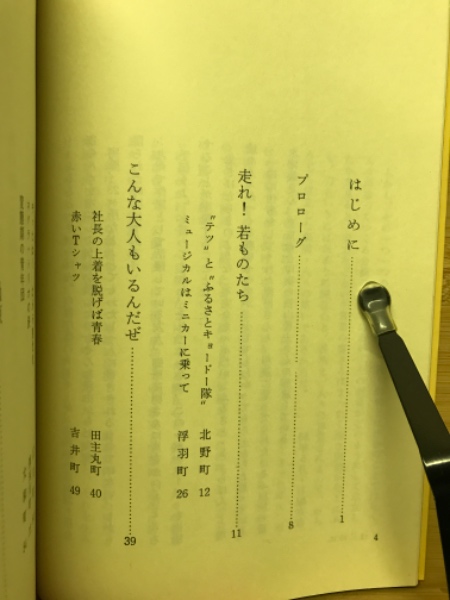 はじめに……1
プロローグ……8
走れ！若ものたち……11
〝テツ〟と〝ふるさとキョードー隊〟　北野町 12
ミュージカルはミニカーに乗って　浮羽町 26
こんな大人もいるんだぜ……39
社長の上着を脱げば青春　田主丸町 40
赤いTシャツ　吉井町 49
4